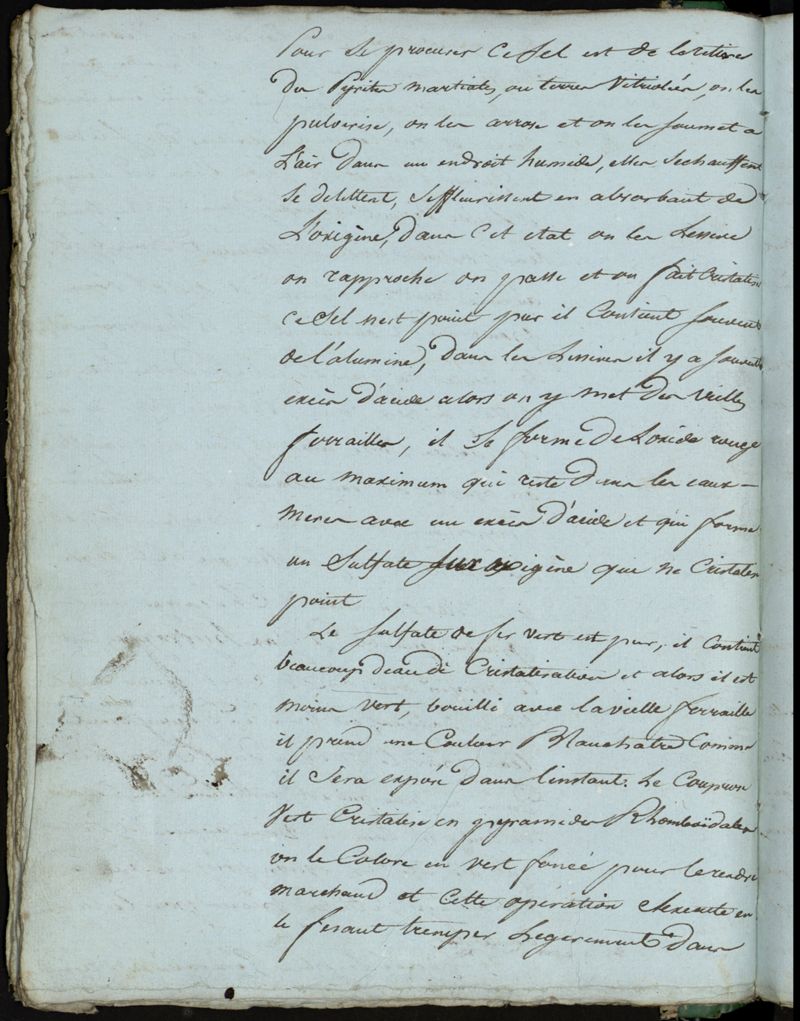 Pour se procurer ce sel est de le retirer
des Pyrites martiales, ou terres Vitriolées, on les
pulverise, on les arrose et on les soumet a
L'air dans un endroit humide, elles sechauffent
se delittent, seffleurissent en absorbant de
L'oxigène, dans cet etat on les Lessive
on rapproche on passe et on fait Cristaliser
ce Sel n'est point pur il Contient souvent
de l'alumine, dans les Lessives il y a souvent
excès d'acide alors on y met des vieilles
ferrailles, il se forme de L'oxide rouge
au maximum qui reste dans les eaux-
meres avec un excès d'acide et qui forme
un Sulfate suroxigène qui ne Cristalise
point
Le sulfate de fer vert est pur, il contient
beaucoup d'eau de Cristalisation et alors il est
moins vert, bouilli avec la vielle ferraille
il prend une Couleur Blanchatre Comme
il sera exposé dans l'instant. Le Couperose
Vert Cristalise en pyramides Rhomboïdales
on le Colore en vert foncé pour le rendre
marchand et cette opération s'execute en
le fesant tremper Legerement dans